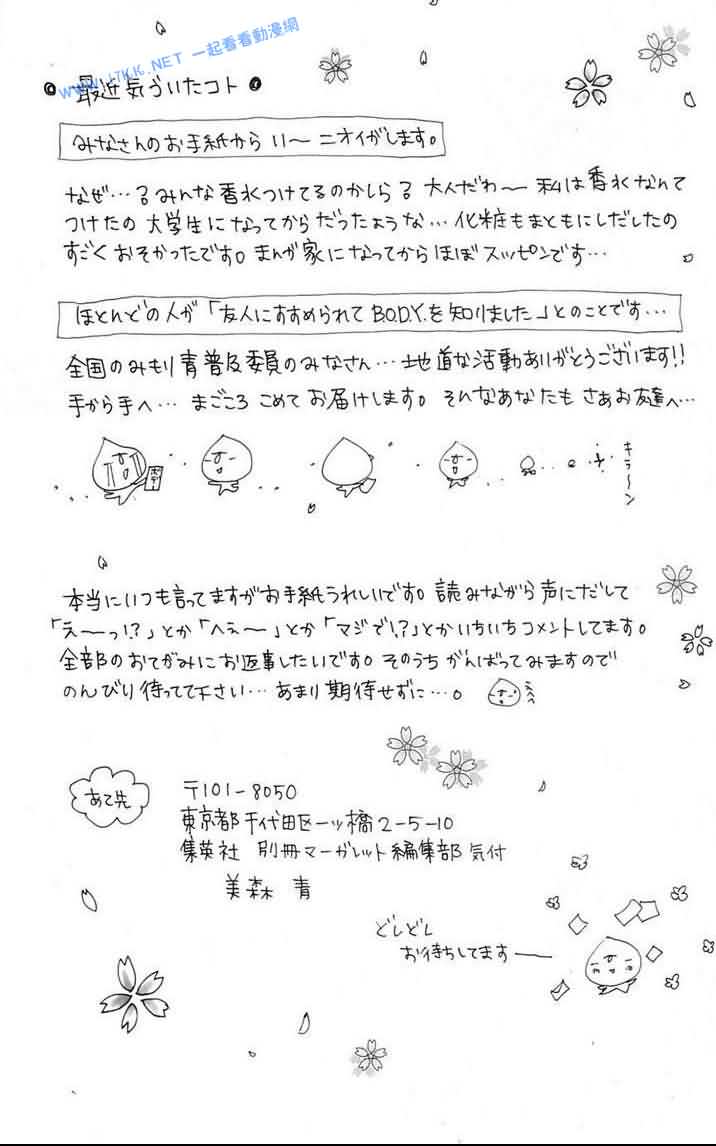 WWW.17KK.NET 一起看看動漫網
最近気づいたコト
みなさんのお手紙から い〜 ニオイがします。
なぜ…？みんな香水つけてるのかしら？大人だわ〜 私は香水なんて
つけたの 大学生になってからだったような…化粧もまともにしだしたの
すごく おそかったです。まんが家になってからほぼスッピンです…
ほとんどの人が「友人にすすめられて B.O.D.Y.を知りました」とのことです…
全国のみもり青普及委員のみなさん…地道な活動ありがとうございます!!
手から手へ… まごころ こめて お届けします。そんなあなたも さぁお友達へ…
キラーン
本当にいつも言ってますがお手紙うれしいです。読みながら声にだして
「え〜っ!?」とか「へぇ〜」とか「マジで!?」とかいちいちコメントしてます。
全部のおてがみにお返事したいです。そのうち がんばってみますので
のんびり待ってて下さい… あまり期待せずに…。
あて先
〒101-8050
東京都千代田区一ッ橋2-5-10
集英社 別冊マーガレット編集部 気付
美森 青
どしどし
お待ちしてます——